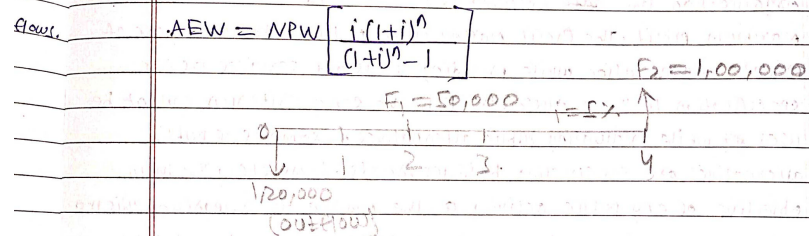 flows.
AEW = NPW [ i.(1+i)^n / (1+i)^n - 1 ]
F2 = 1,00,000
F1 = 50,000 i = 5%
0 1 2 3 4
1,20,000
(outflow)